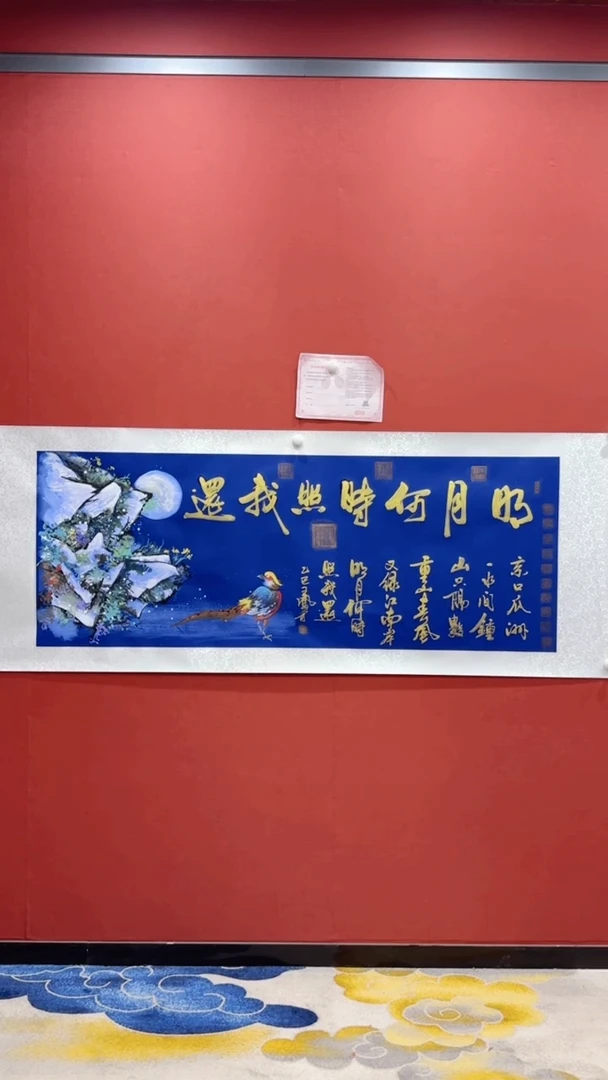 明月何時照我還
京口瓜洲
一水间鐘
山只隔數
重山春風
又綠江南岸
明月何時
照我還
乙巳